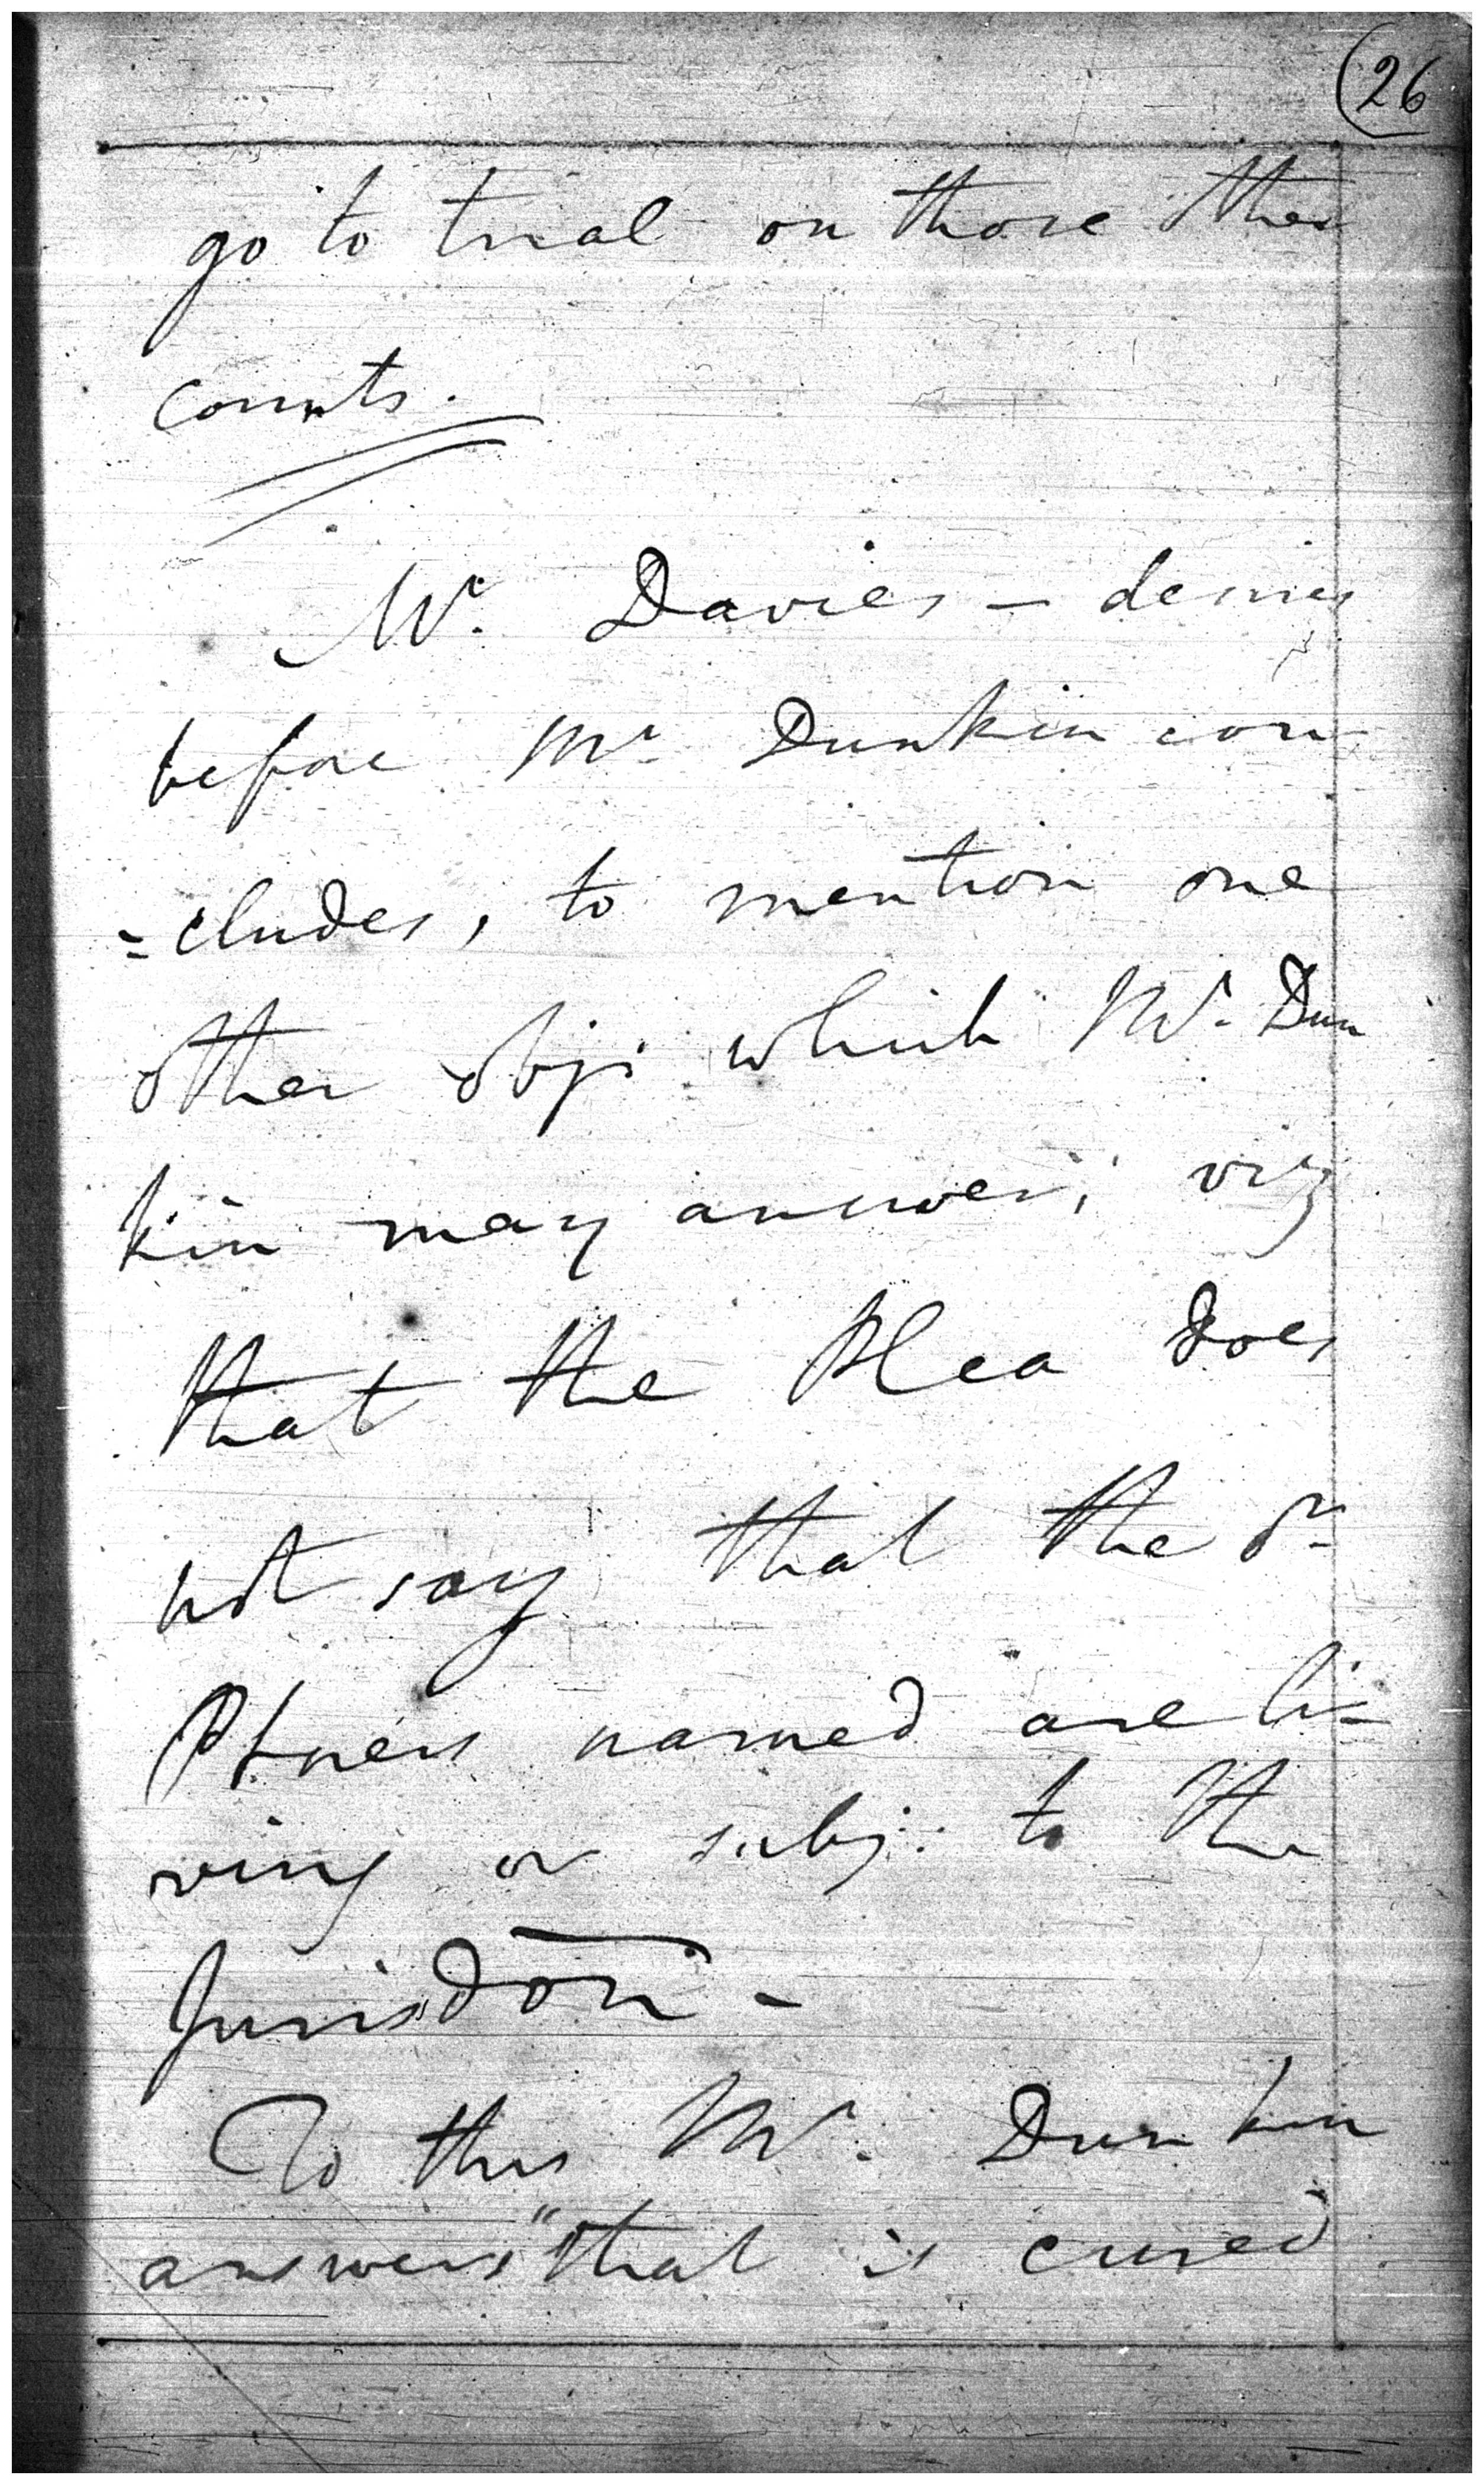 26
go to trial on those other
counts.
Mr. Davies — desires
before Mr. Dunkin con-
=cludes, to mention one
other obj: which Mr. Dun
kin may answer; viz
that the Plea does
not say that the or.
Ptners named are li=
ving or subj: to the
Jurisdon -
To this Mr. Dunkin
answers "that is cured